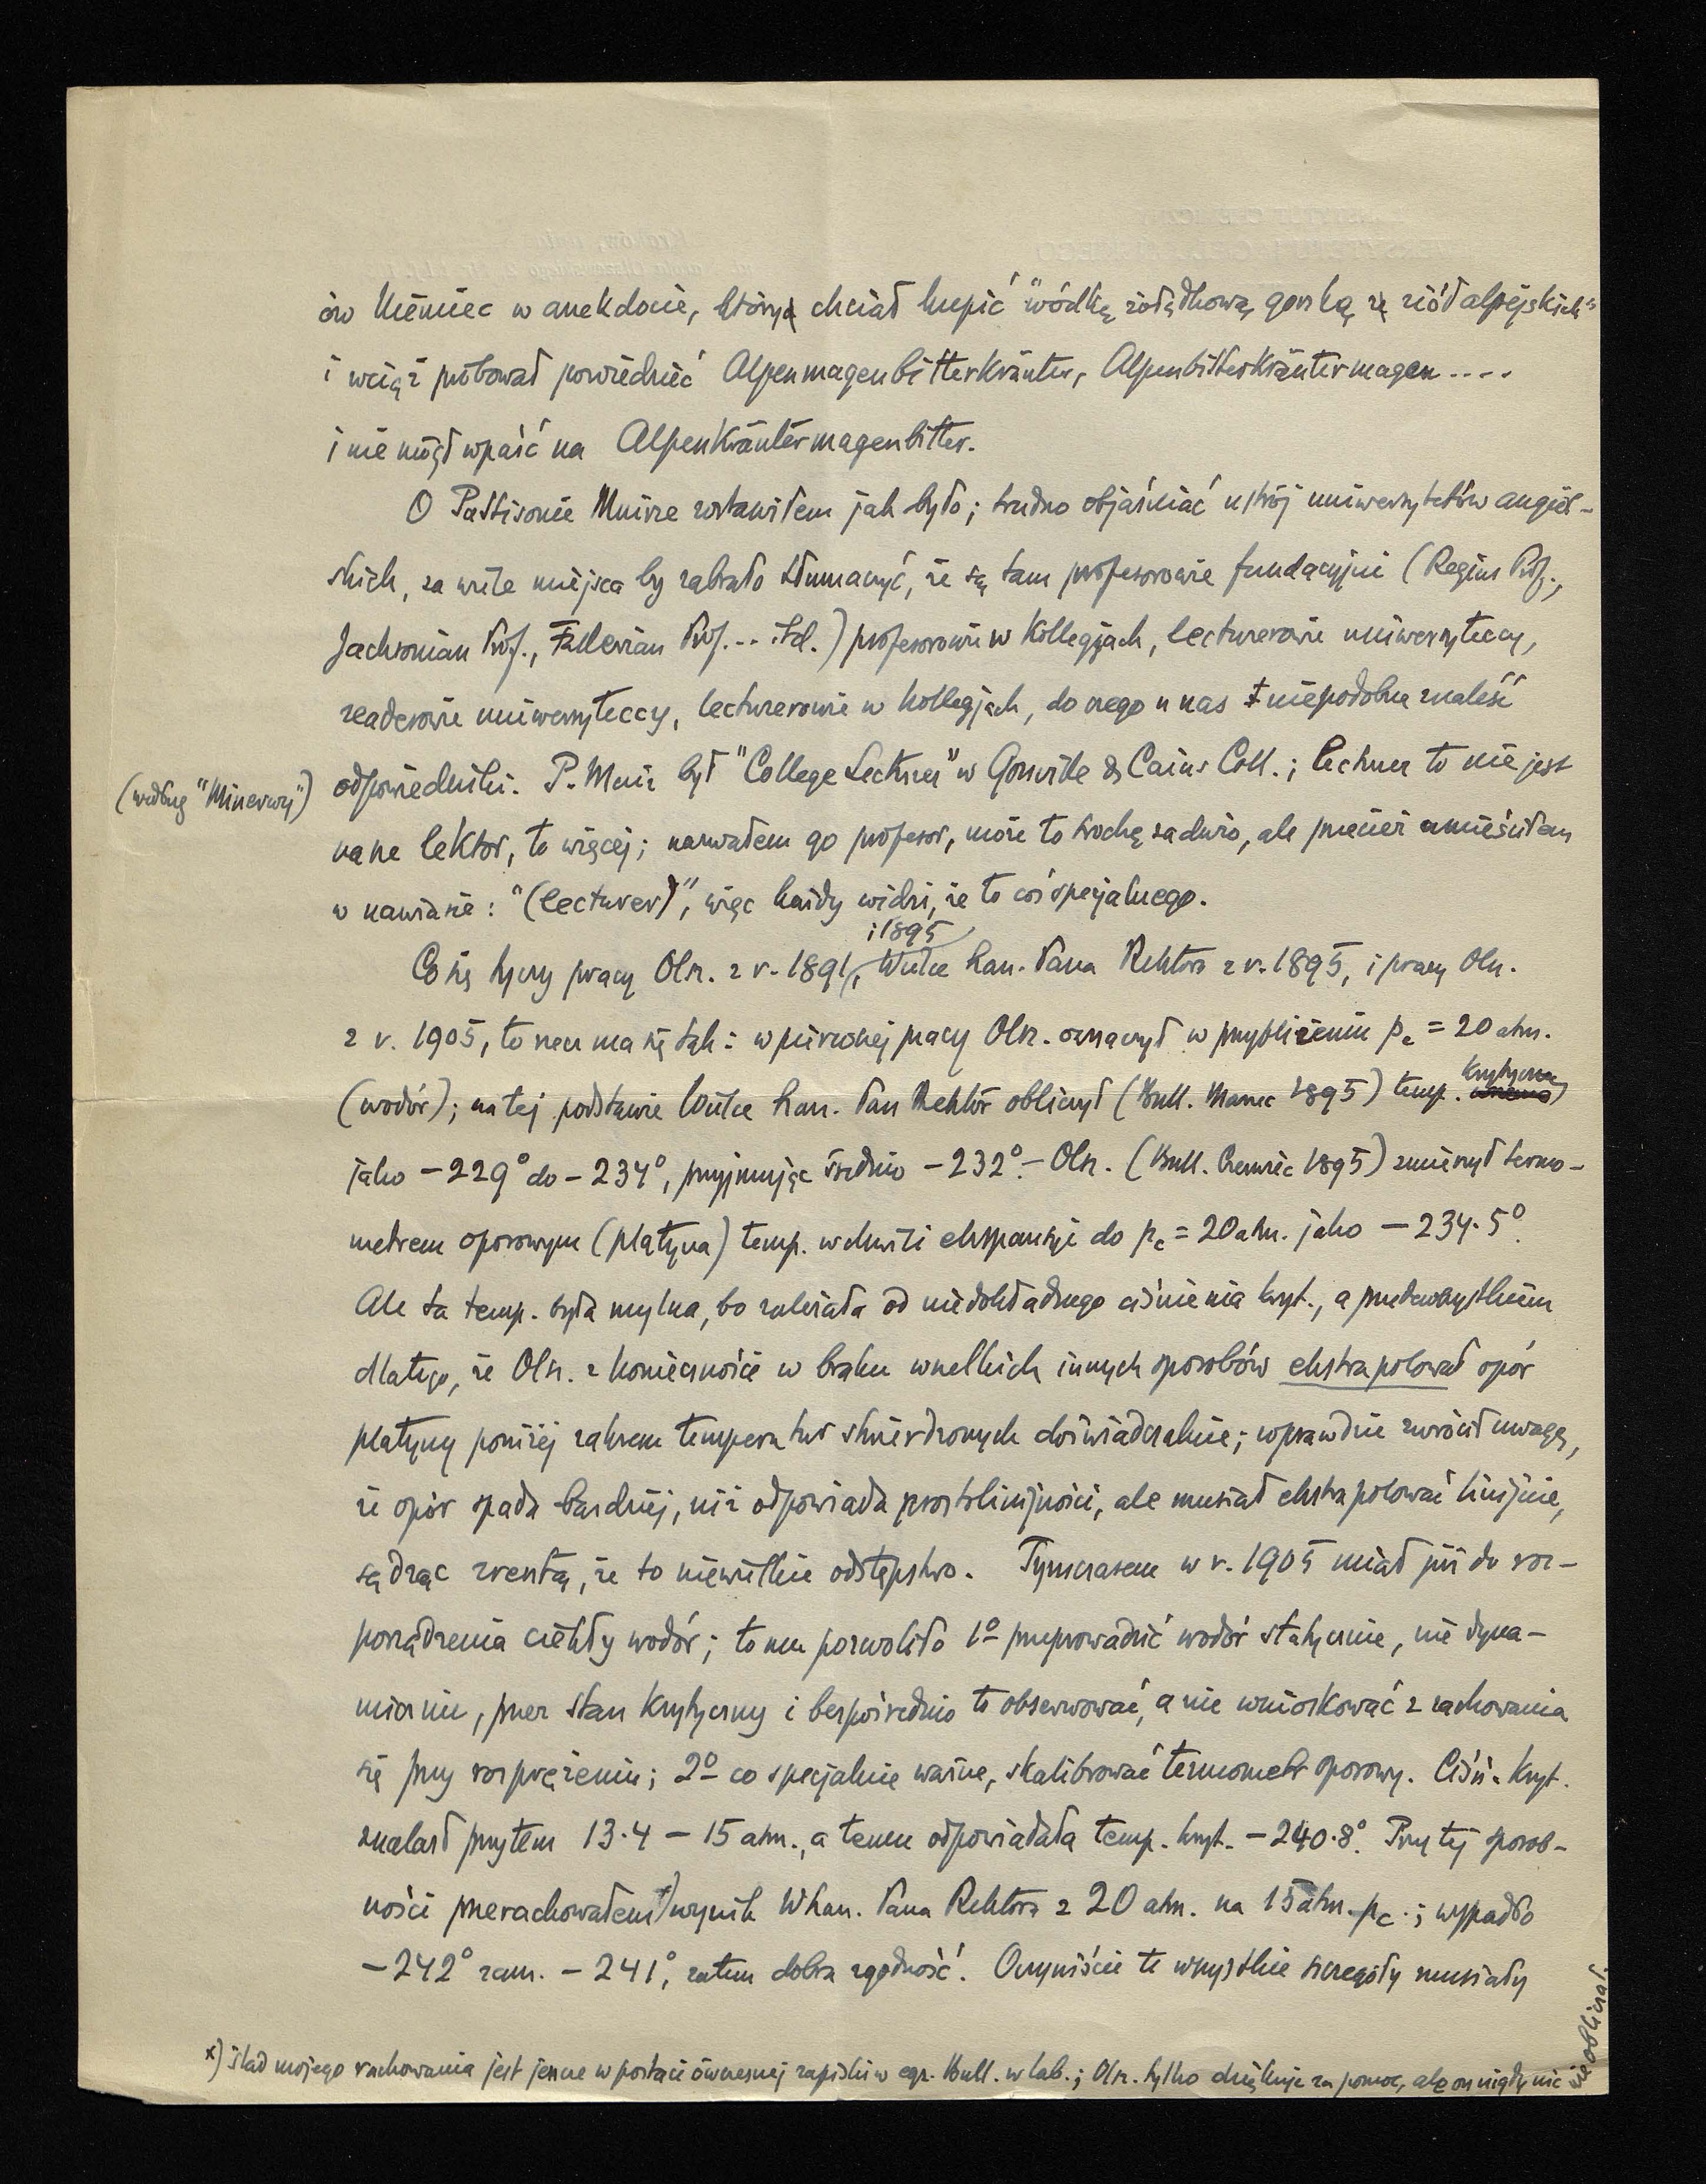 ów Niemiec w anekdocie, który chciał kupić "wódkę żołądkową gorzką z ziół alpejskich"
i wciąż próbował powiedzieć Alpenmagenbitterkräuter, Alpenbitterkräutermagen....
i nie mógł wpaść na Alpenkräutermagenbitter.
O Pattisonie Muirze zostawiłem jak było; trudno objaśniać ustrój uniwersytetów angiel-
skich, za wiele miejsca by zabrało tłumaczyć, że są tam profesorowie fundacyjni (Regius Prof.,
Jacksonian Prof., Fullerian Prof... itd.) profesorowie w Kollegjach, lecturerowie uniwersyteccy,
readerowie uniwersyteccy, lecturerowie w kollegjach, do czego u nas niepodobna znaleść
odpowiedniki. P. Muir był "College Lecturer" w Gonville & Caius Coll.; lecturer to nie jest
(według "Minerwy")
nasz lektor, to więcej; nazwałem go profesor, może to trochę zadużo, ale przecież umieściłem
w nawiasie: "(lecturer)", więc każdy widzi, że to coś specjalnego.
Co się tyczy pracy Olsz. z r. 1891, i 1895 Wielce Szan. Pana Rektora z r. 1895, i pracy Olsz.
z r. 1905, to rzecz ma się tak: w pierwszej pracy Olsz. oznaczył w przybliżeniu pc = 20 atm.
(wodór); na tej podstawie Wielce Szan. Pan Rektor obliczył (Bull. Marzec 1895) temp. krytyczną
jako −229° do −234°, przyjmując średnio −232°.− Olsz. (Bull. Czerwiec 1895) zmierzył termo-
metrem oporowym (platyna) temp. w chwili ekspansji do pc = 20 atm. jako −234.5°.
Ale ta temp. była mylna, bo zależała od niedokładnego ciśnienia kryt., a przedewszystkiem
dlatego, że Olsz. z konieczności w braku wszelkich innych sposobów ekstrapolował opór
platyny poniżej zakresu temperatur stwierdzonych doświadczalnie; wprawdzie zwrócił uwagę,
że opór spada bardziej, niż odpowiada prostolinijności, ale musiał ekstrapolować linijnie,
sądząc zresztą, że to niewielkie odstępstwo. Tymczasem w r. 1905 miał już do roz-
porządzenia ciekły wodór; to mu pozwoliło 1º przeprowadzić wodór statycznie, nie dyna-
micznie, przez stan krytyczny i bezpośrednio to obserwować, a nie wnioskować z zachowania
się przy rozprężeniu; 2º co specjalnie ważne, skalibrować termometr oporowy. Ciśń. kryt.
znalazł przytem 13.4 − 15 atm., a temu odpowiadała temp. kryt. −240.8°. Przy tej sposob-
ności przerachowałem*) wynik WSzan. Pana Rektora z 20 atm. na 15 atm. pc.; wypadło
−242° zam. −241°, zatem dobra zgodność. Oczywiście te wszystkie szczegóły musiały
*) ślad mojego rachowania jest jeszcze w postaci ówczesnej zapiski w egz. Bull. w lab.; Olsz. tylko dziękuje za pomoc, ale on nigdy nic
nie obliczał.